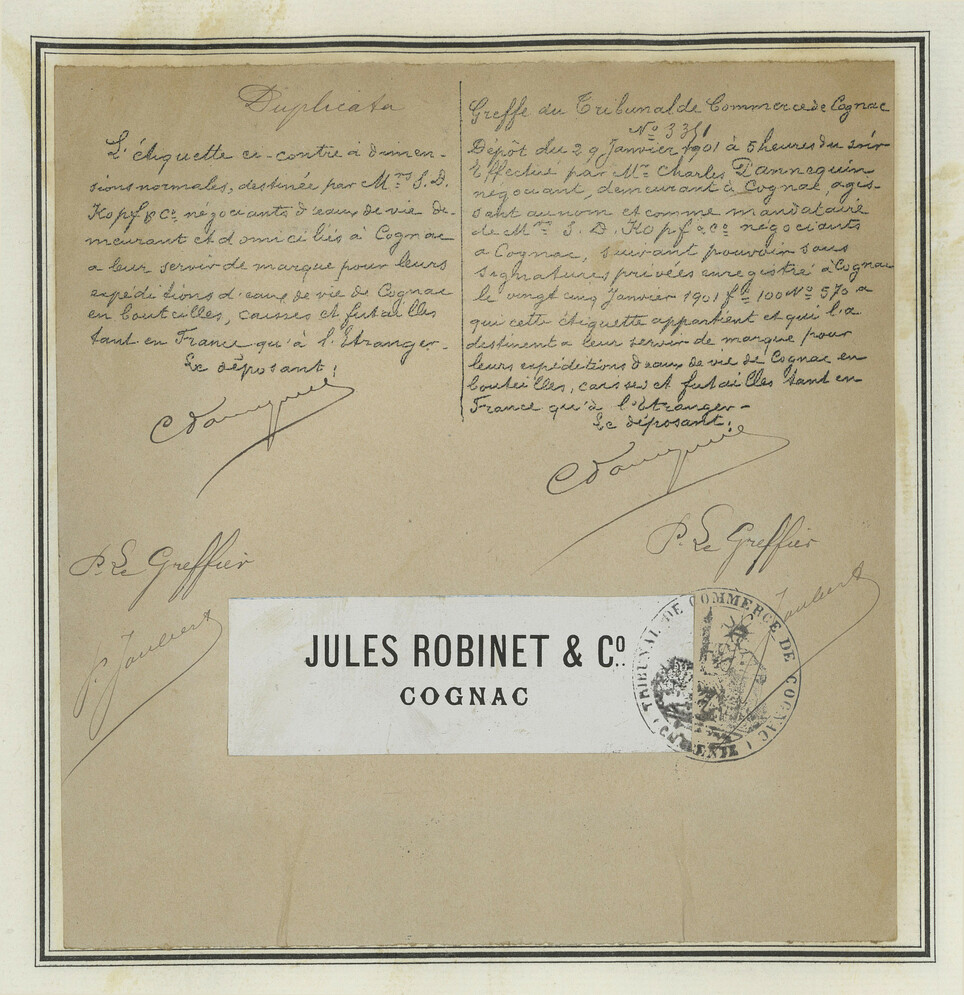 Duplicata
L'étiquette ci-contre à dimen-
sions normales, destinée par Mrs S. D.
Kopf & Co négociants d'eaux de vie de-
meurant et domiciliés à Cognac
a leur servir de marque pour leurs
expéditions d'eaux de vie de Cognac
en bouteilles, caisses et futailles
tant en France qu'à l'Etranger.-
Le déposant;
CDannequin
P. Le Greffier
P. Joubert
Greffe du Tribunal de Commerce de Cognac
No 3351
Dépôt du 29 Janvier 1901 à 5 heures du soir
Effectué par Mr Charles Dannequin
négociant, demeurant à Cognac, agis-
sant au nom et comme mandataire
de Mrs S. D. Kopf & Co négociants
a Cognac, suivant pouvoir sous
signatures privées enregistré à Cognac
le vingt cinq Janvier 1901 fo 100 No 570 a
qui cette étiquette appartient et qui l'a
destinent a leur servir de marque pour
leurs expéditions d'eaux de vie de Cognac en
bouteilles, caisses et futailles tant en
France qu'à l'Etranger-
Le déposant;
CDannequin
P. Le Greffier
Joubert
JULES ROBINET & Co.
COGNAC
TRIBUNAL DE COMMERCE DE COGNAC
(CHARENTE)